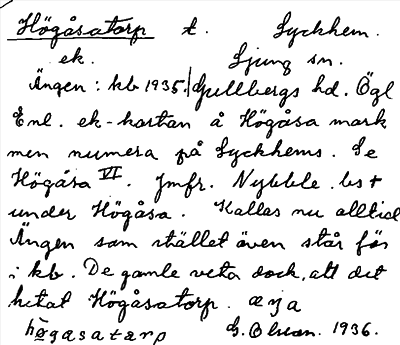 Högåsatorp t. Lyckhem.
ek. Ljung sn.
Ängen : kb 1935. Gullbergs hd. Ögl
Enl. ek-kartan å Högåsa mark
men numera på Lyckhems. Se
Högåsa VI. Jmfr. Nybble. bs +
under Högåsa. Kallas nu alltid
Ängen som stället även står för
i kb. De gamle veta dock, att det
hetat Högåsatorp. æja
högasatarp G. Olsson. 1936.